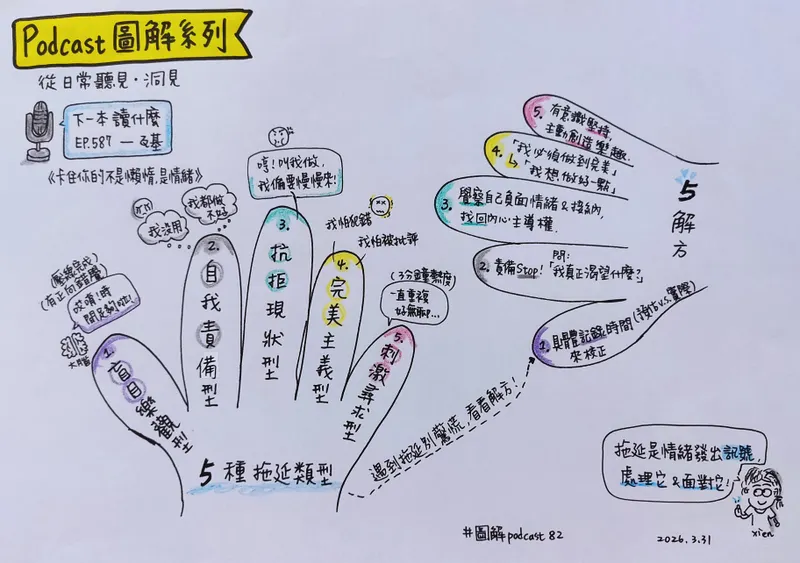 Podcast 圖解系列
從日常聽見・洞見
下一本讀什麼
EP.587 — 瓦基
《卡住你的不是懶惰,是情緒》
(壓線完成)
(有正向醋體)
哎唷!時
間足夠啦!
大腦
1.盲目樂觀型
我沒用
我都做
不好
2.自我責備型
哼!叫我做,
我偏要慢慢來!
3.抗拒現狀型
我怕犯錯
我怕被批評
4.完美主義型
(3分鐘熱度)
一直重複
好無聊...
5.刺激尋求型
5種拖延類型
遇到拖延別驚慌,看看解方!
5解方
5.有意識堅持,
主動創造樂趣.
4.「我必須做到完美」
↳「我想做好一點」
3.覺察自己負面情緒&接納,
找回內心主導權.
2.責備Stop!問:「我真正渴望什麼?」
1.具體記錄時間(預估v.s.實際)
來校正
拖延是情緒發出訊號,
處理它&面對它!
xien
#圖解podcast 82
2026.3.31